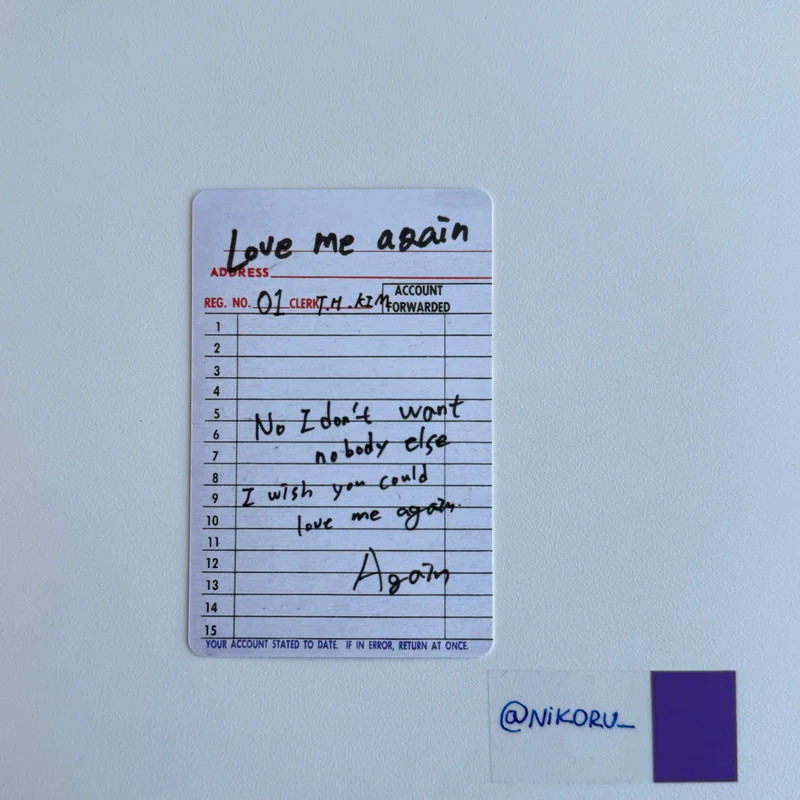 Love me again
ADDRESS
REG. NO. 01 CLERK T.H. KIM ACCOUNT FORWARDED
1
2
3
4
5
6
7
8
9
10
11
12
13
14
15
No I don't want
nobody else
I wish you could
love me again.
Again
YOUR ACCOUNT STATED TO DATE. IF IN ERROR, RETURN AT ONCE.
@NiKORU_